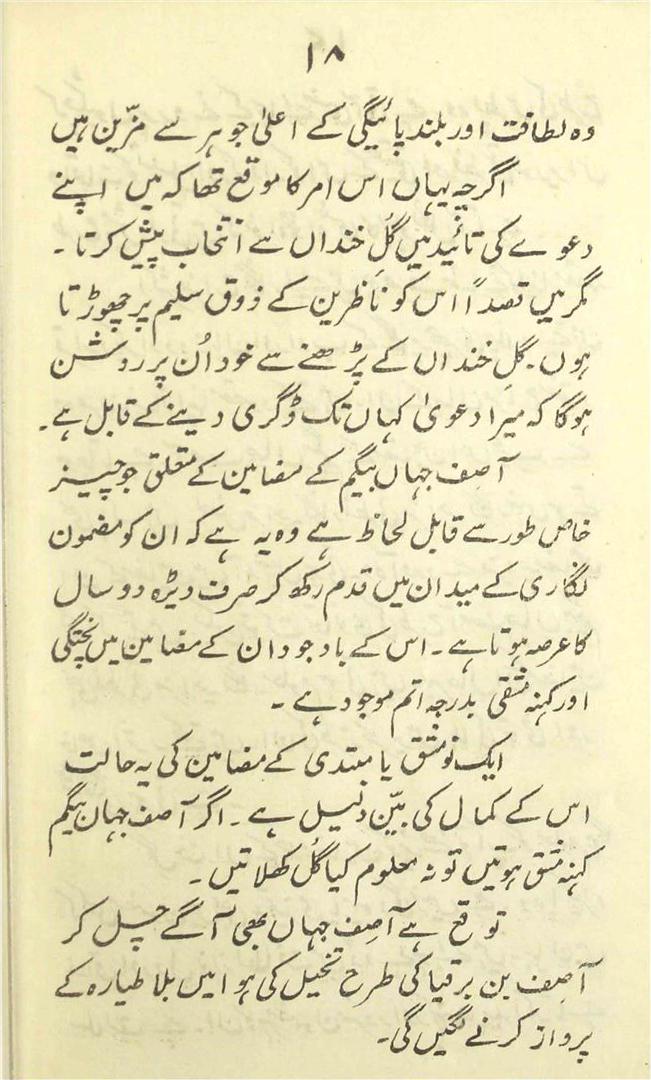 ۱۸
وہ لطافت اور بلند پائیگی کے اعلیٰ جوہر سے مزّین ہیں
اگرچہ یہاں اس امر کا موقع تھا کہ میں اپنے
دعوے کی تائید میں گُلِ خنداں سے انتخاب پیش کرتا ۔
مگر میں قصداً اس کو ناظرین کے ذوق سلیم پر چھوڑتا
ہوں ۔ گلِ خنداں کے پڑھنے سے خود اُن پر روشن
ہوگا کہ میرا دعویٰ کہاں تک ڈگری دینے کے قابل ہے ۔
آصف جہاں بیگم کے مضامین کے متعلق جو چیز
خاص طور سے قابل لحاظ ہے وہ یہ ہے کہ ان کو مضمون
نگاری کے میدان میں قدم رکھ کر صرف ڈیڑہ دو سال
کا عرصہ ہوتا ہے ۔ اس کے باوجود ان کے مضامین میں پختگی
اور کہنہ مشقی بدرجہ اتم موجود ہے ۔
ایک نومشق یا مبتدی کے مضامین کی یہ حالت
اس کے کمال کی بیّن دلیل ہے ۔ اگر آصف جہان بیگم
کہنہ مشق ہوتیں تو نہ معلوم کیا گُل کھلاتیں ۔
توقع ہے آصف جہاں بھی آگے چل کر
آصِف بن برقیا کی طرح تخیل کی ہوا میں بلا طیارہ کے
پرواز کرنے لگیں گی ۔